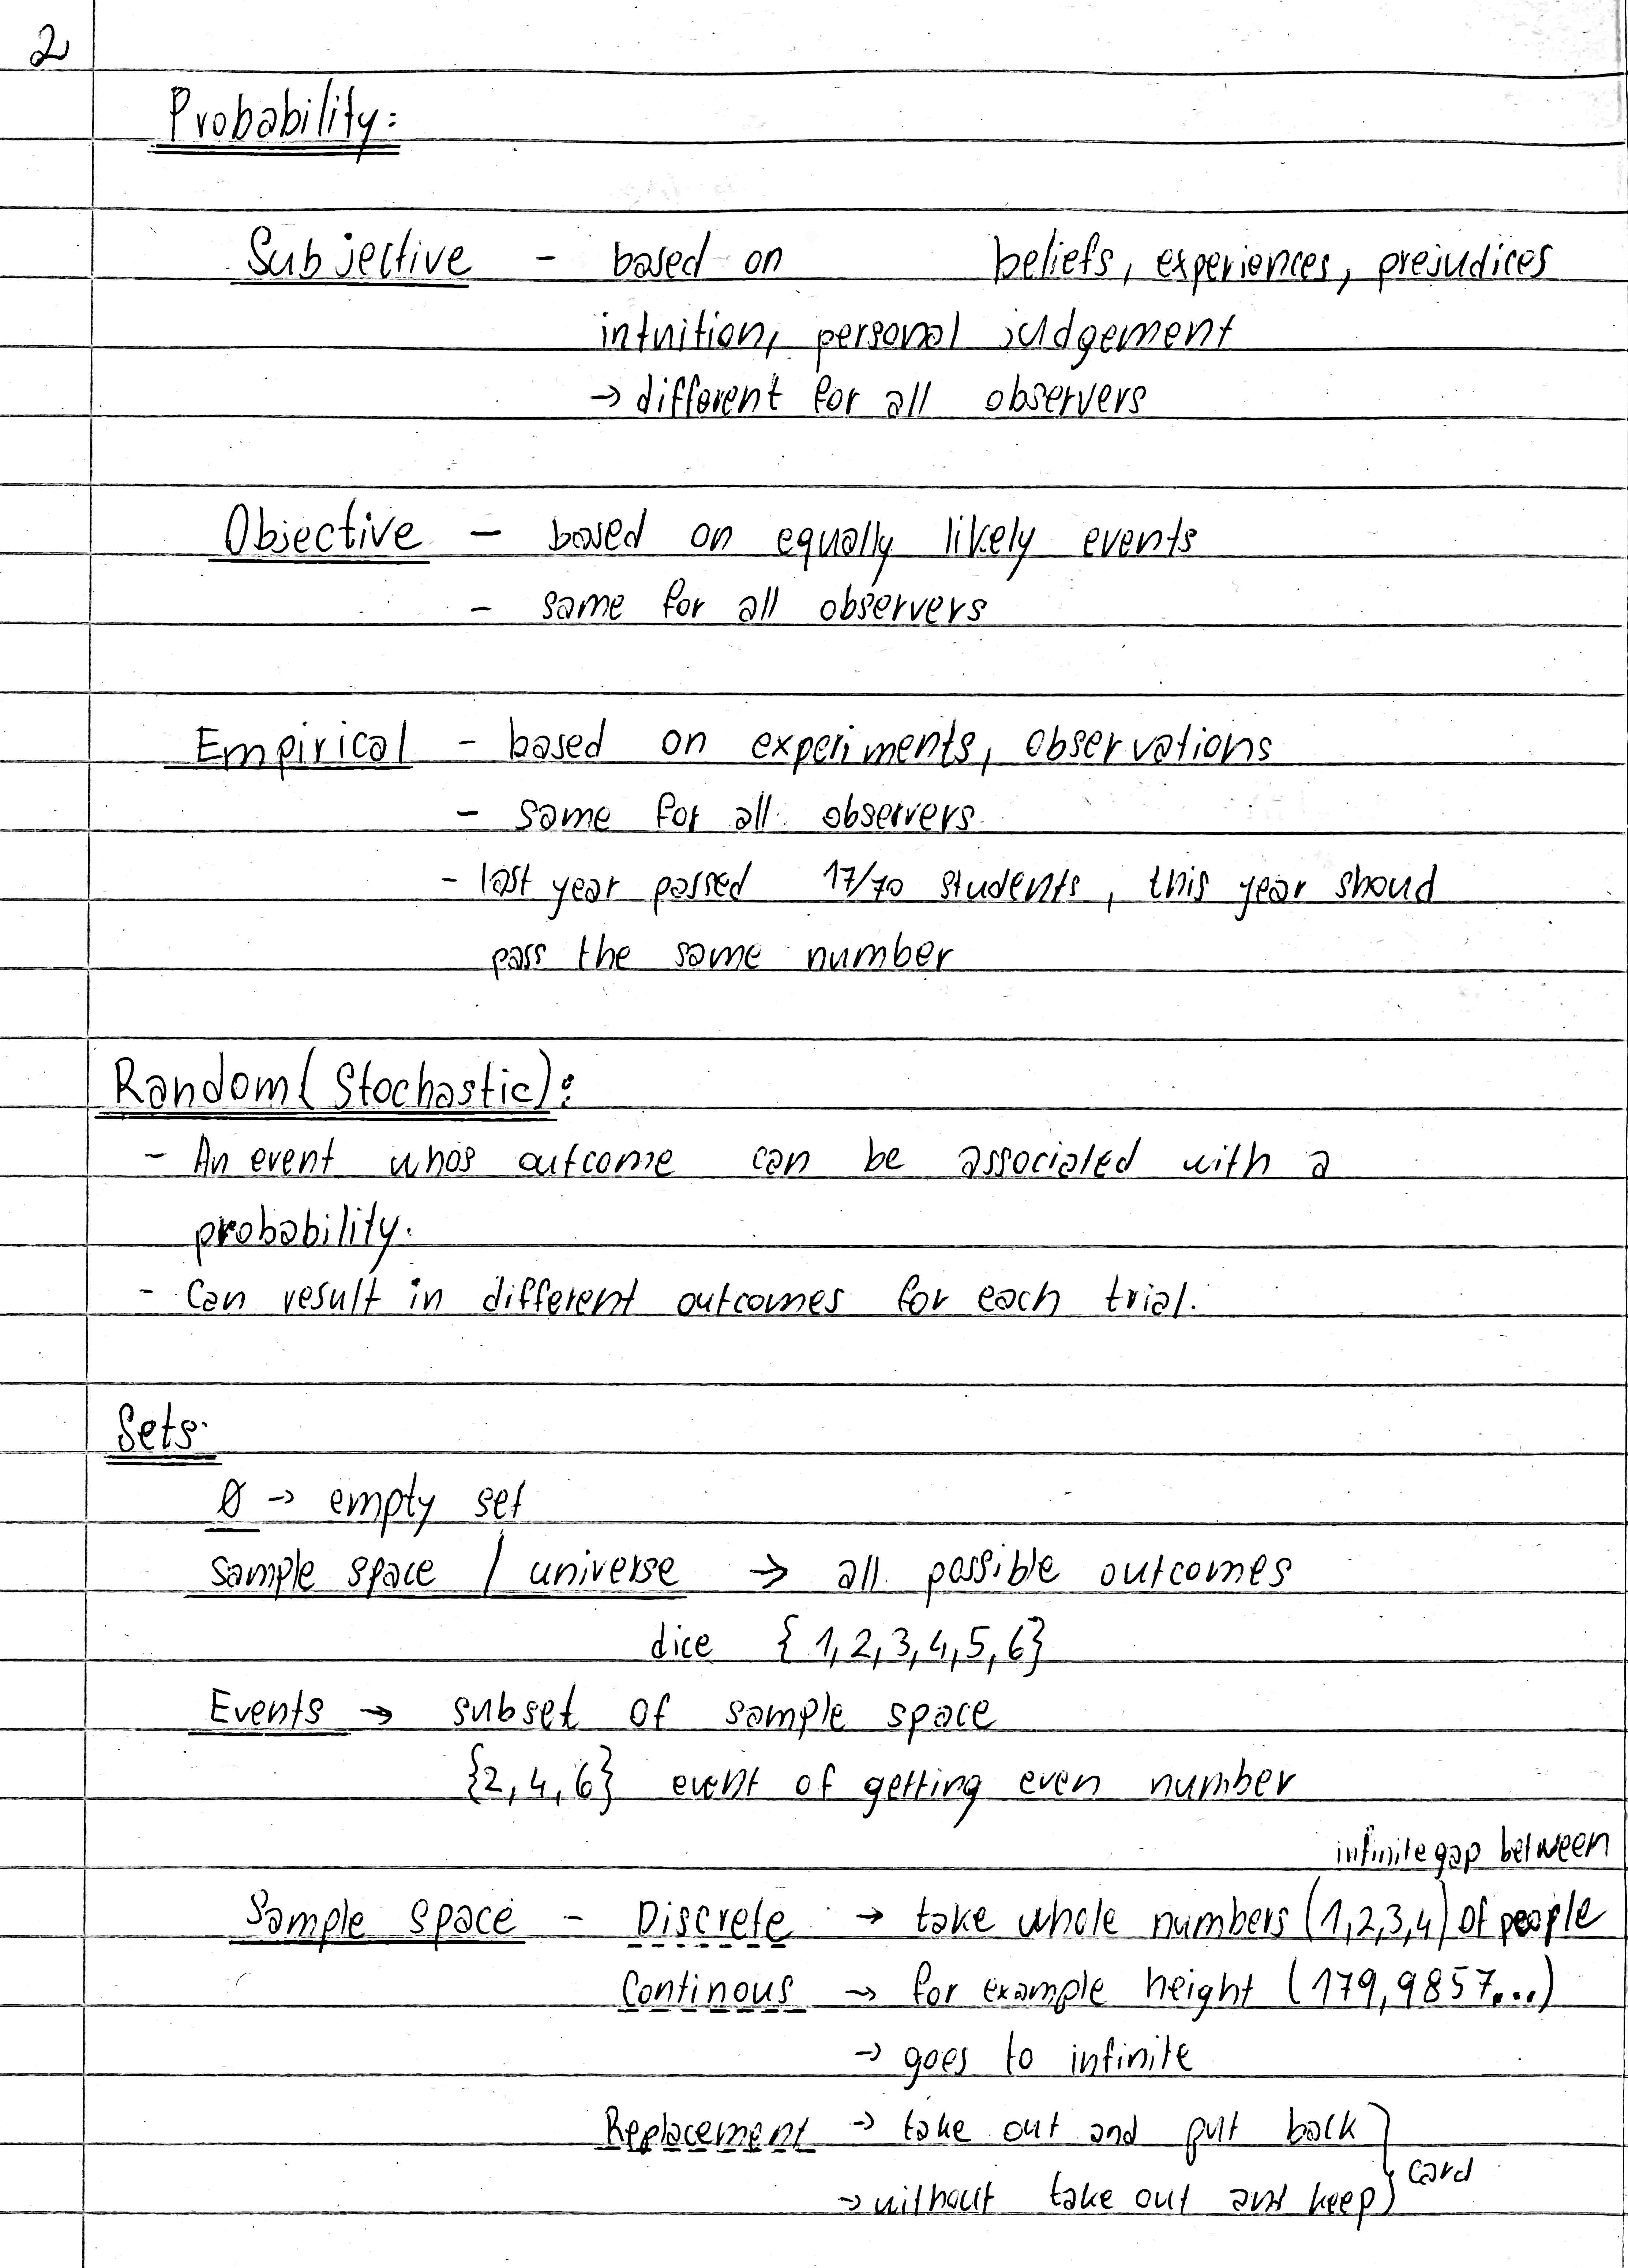 2
Probability:
Subjective - based on beliefs, experiences, prejudices
intuition, personal judgement
→ different for all observers
Objective - based on equally likely events
- same for all observers
Empirical - based on experiments, observations
- same for all observers
- last year passed 17/70 students, this year shoud
pass the same number
Random (Stochastic):
- An event whos outcome can be associated with a
probability.
- Can result in different outcomes for each trial.
Sets:
Ø → empty set
sample space / universe → all possible outcomes
dice {1,2,3,4,5,6}
Events → subset of sample space
{2,4,6} event of getting even number
infinite gap between
Sample space - Discrete → take whole numbers (1,2,3,4) of people
Continous → for example height (179,9857...)
→ goes to infinite
Replacement → take out and put back
→ without take out and keep } card